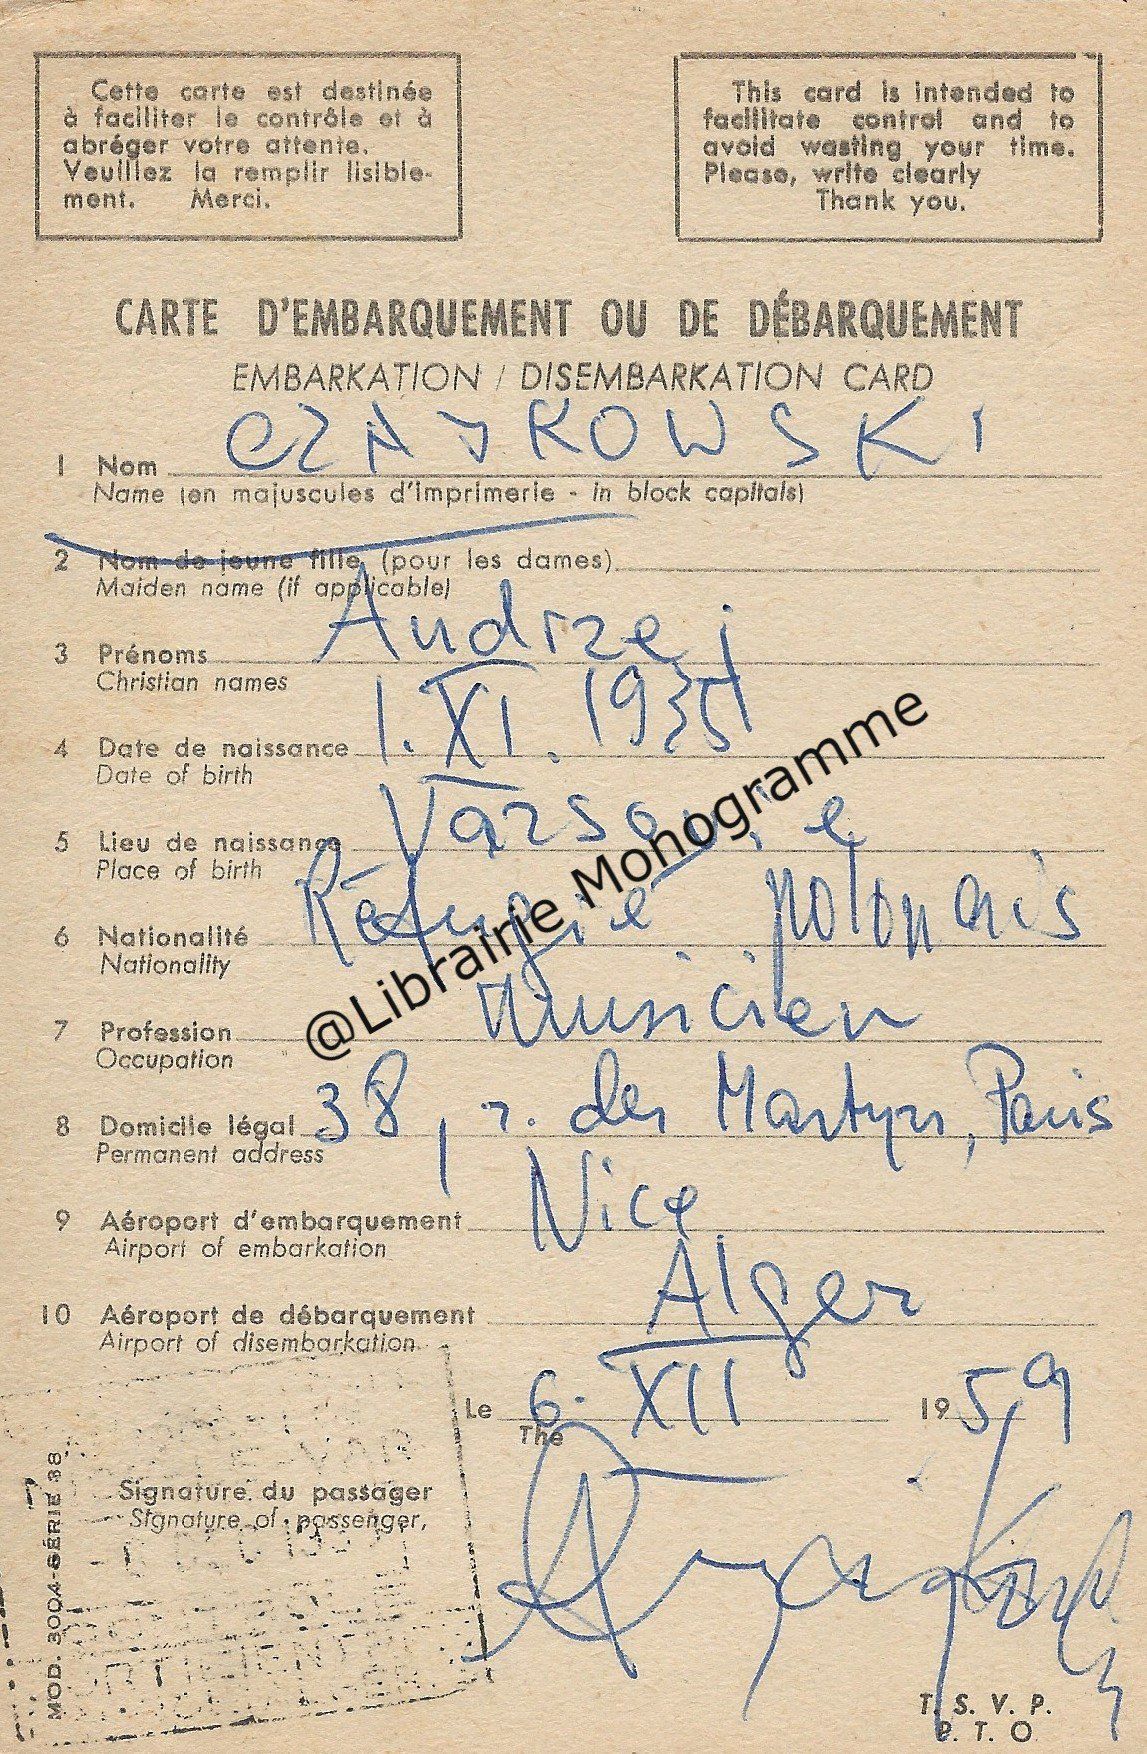 Cette carte est destinée
à faciliter le contrôle et à
abréger votre attente.
Veuillez la remplir lisible-
ment. Merci.
This card is intended to
facilitate control and to
avoid wasting your time.
Please, write clearly
Thank you.
CARTE D'EMBARQUEMENT OU DE DÉBARQUEMENT
EMBARKATION / DISEMBARKATION CARD
1 Nom CZAJKOWSKI
Name (en majuscules d'imprimerie - in block capitals)
2 Nom de jeune fille (pour les dames)
Maiden name (if applicable)
3 Prénoms Andrzej
Christian names
4 Date de naissance 1. XI. 1935
Date of birth
5 Lieu de naissance Varsovie
Place of birth
6 Nationalité Réfugié polonais
Nationality
7 Profession musicien
Occupation
8 Domicile légal 38, r. des Martyrs, Paris
Permanent address
9 Aéroport d'embarquement Nice
Airport of embarkation
10 Aéroport de débarquement Alger
Airport of disembarkation
Le 6. XII 1959
The
Signature du passager
Signature of passenger,
MOD. 300A-SÉRIE 38
T. S. V. P.
P. T. O.
@Librairie Monogramme